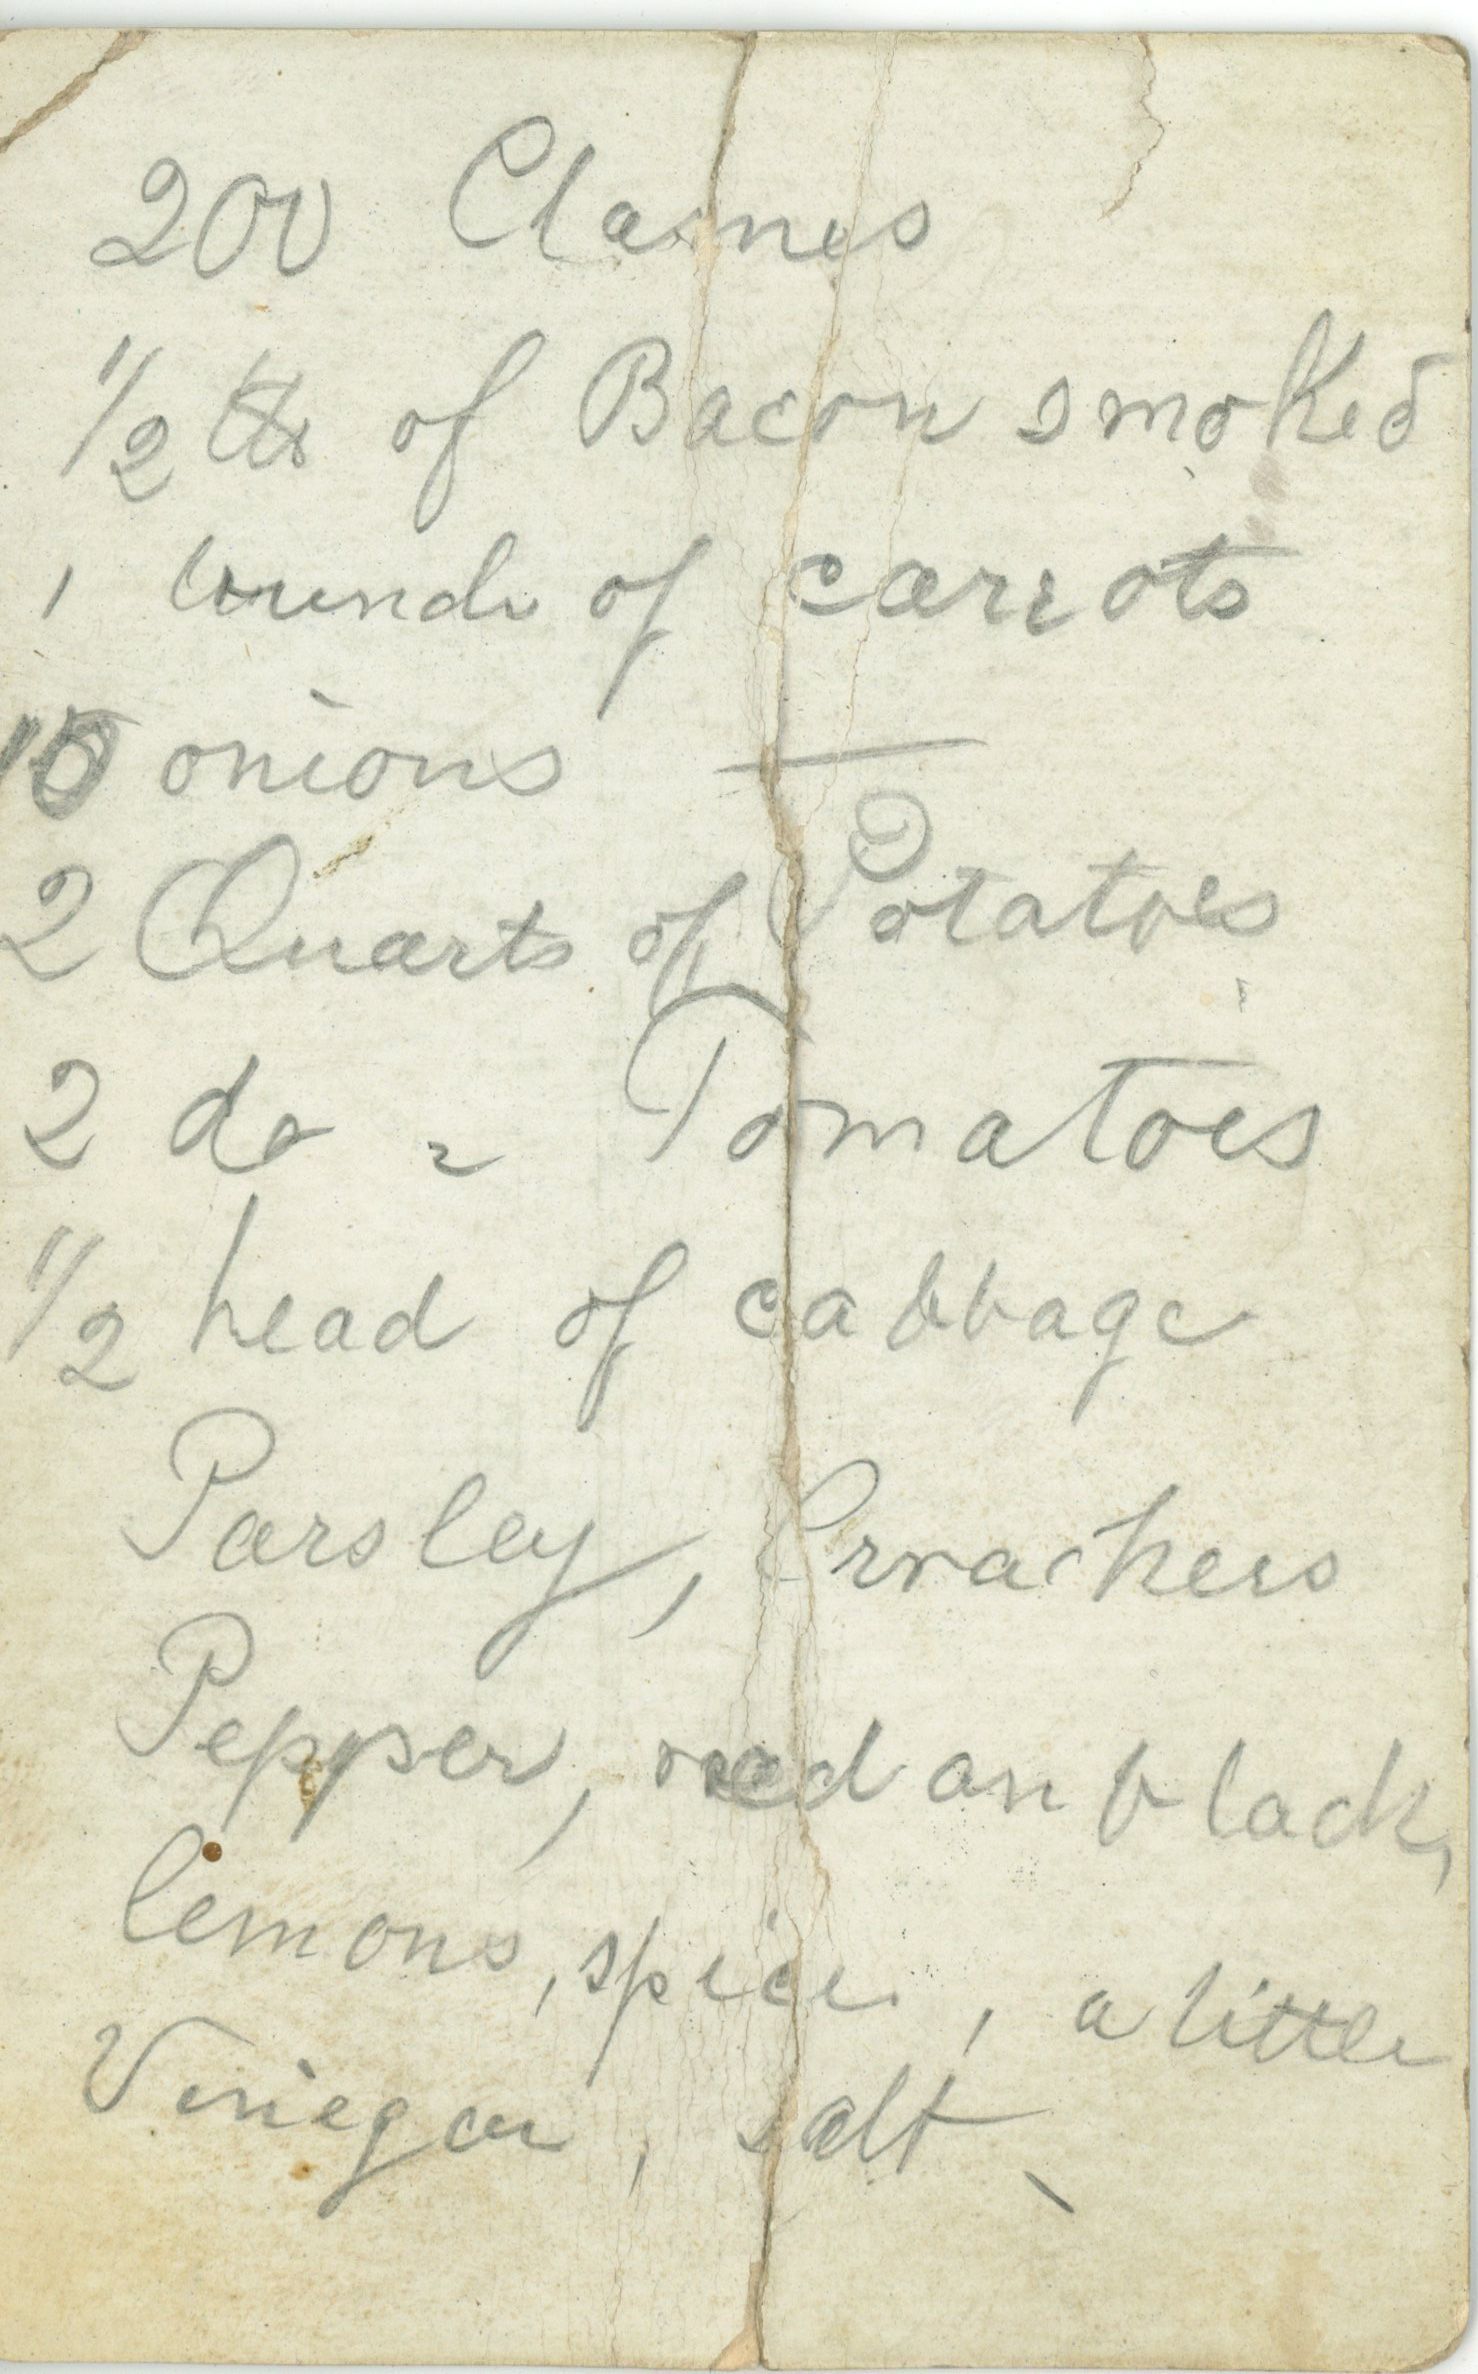 200 Clames
1/2 lb of Bacon smoked
1 bunch of carrots
10 onions —
2 Quarts of Potatoes
2 do " Tomatoes
1/2 head of cabbage
Parsley, Crrackers
Pepper, red an black,
lemons, spice, a little
Vinegar, salt